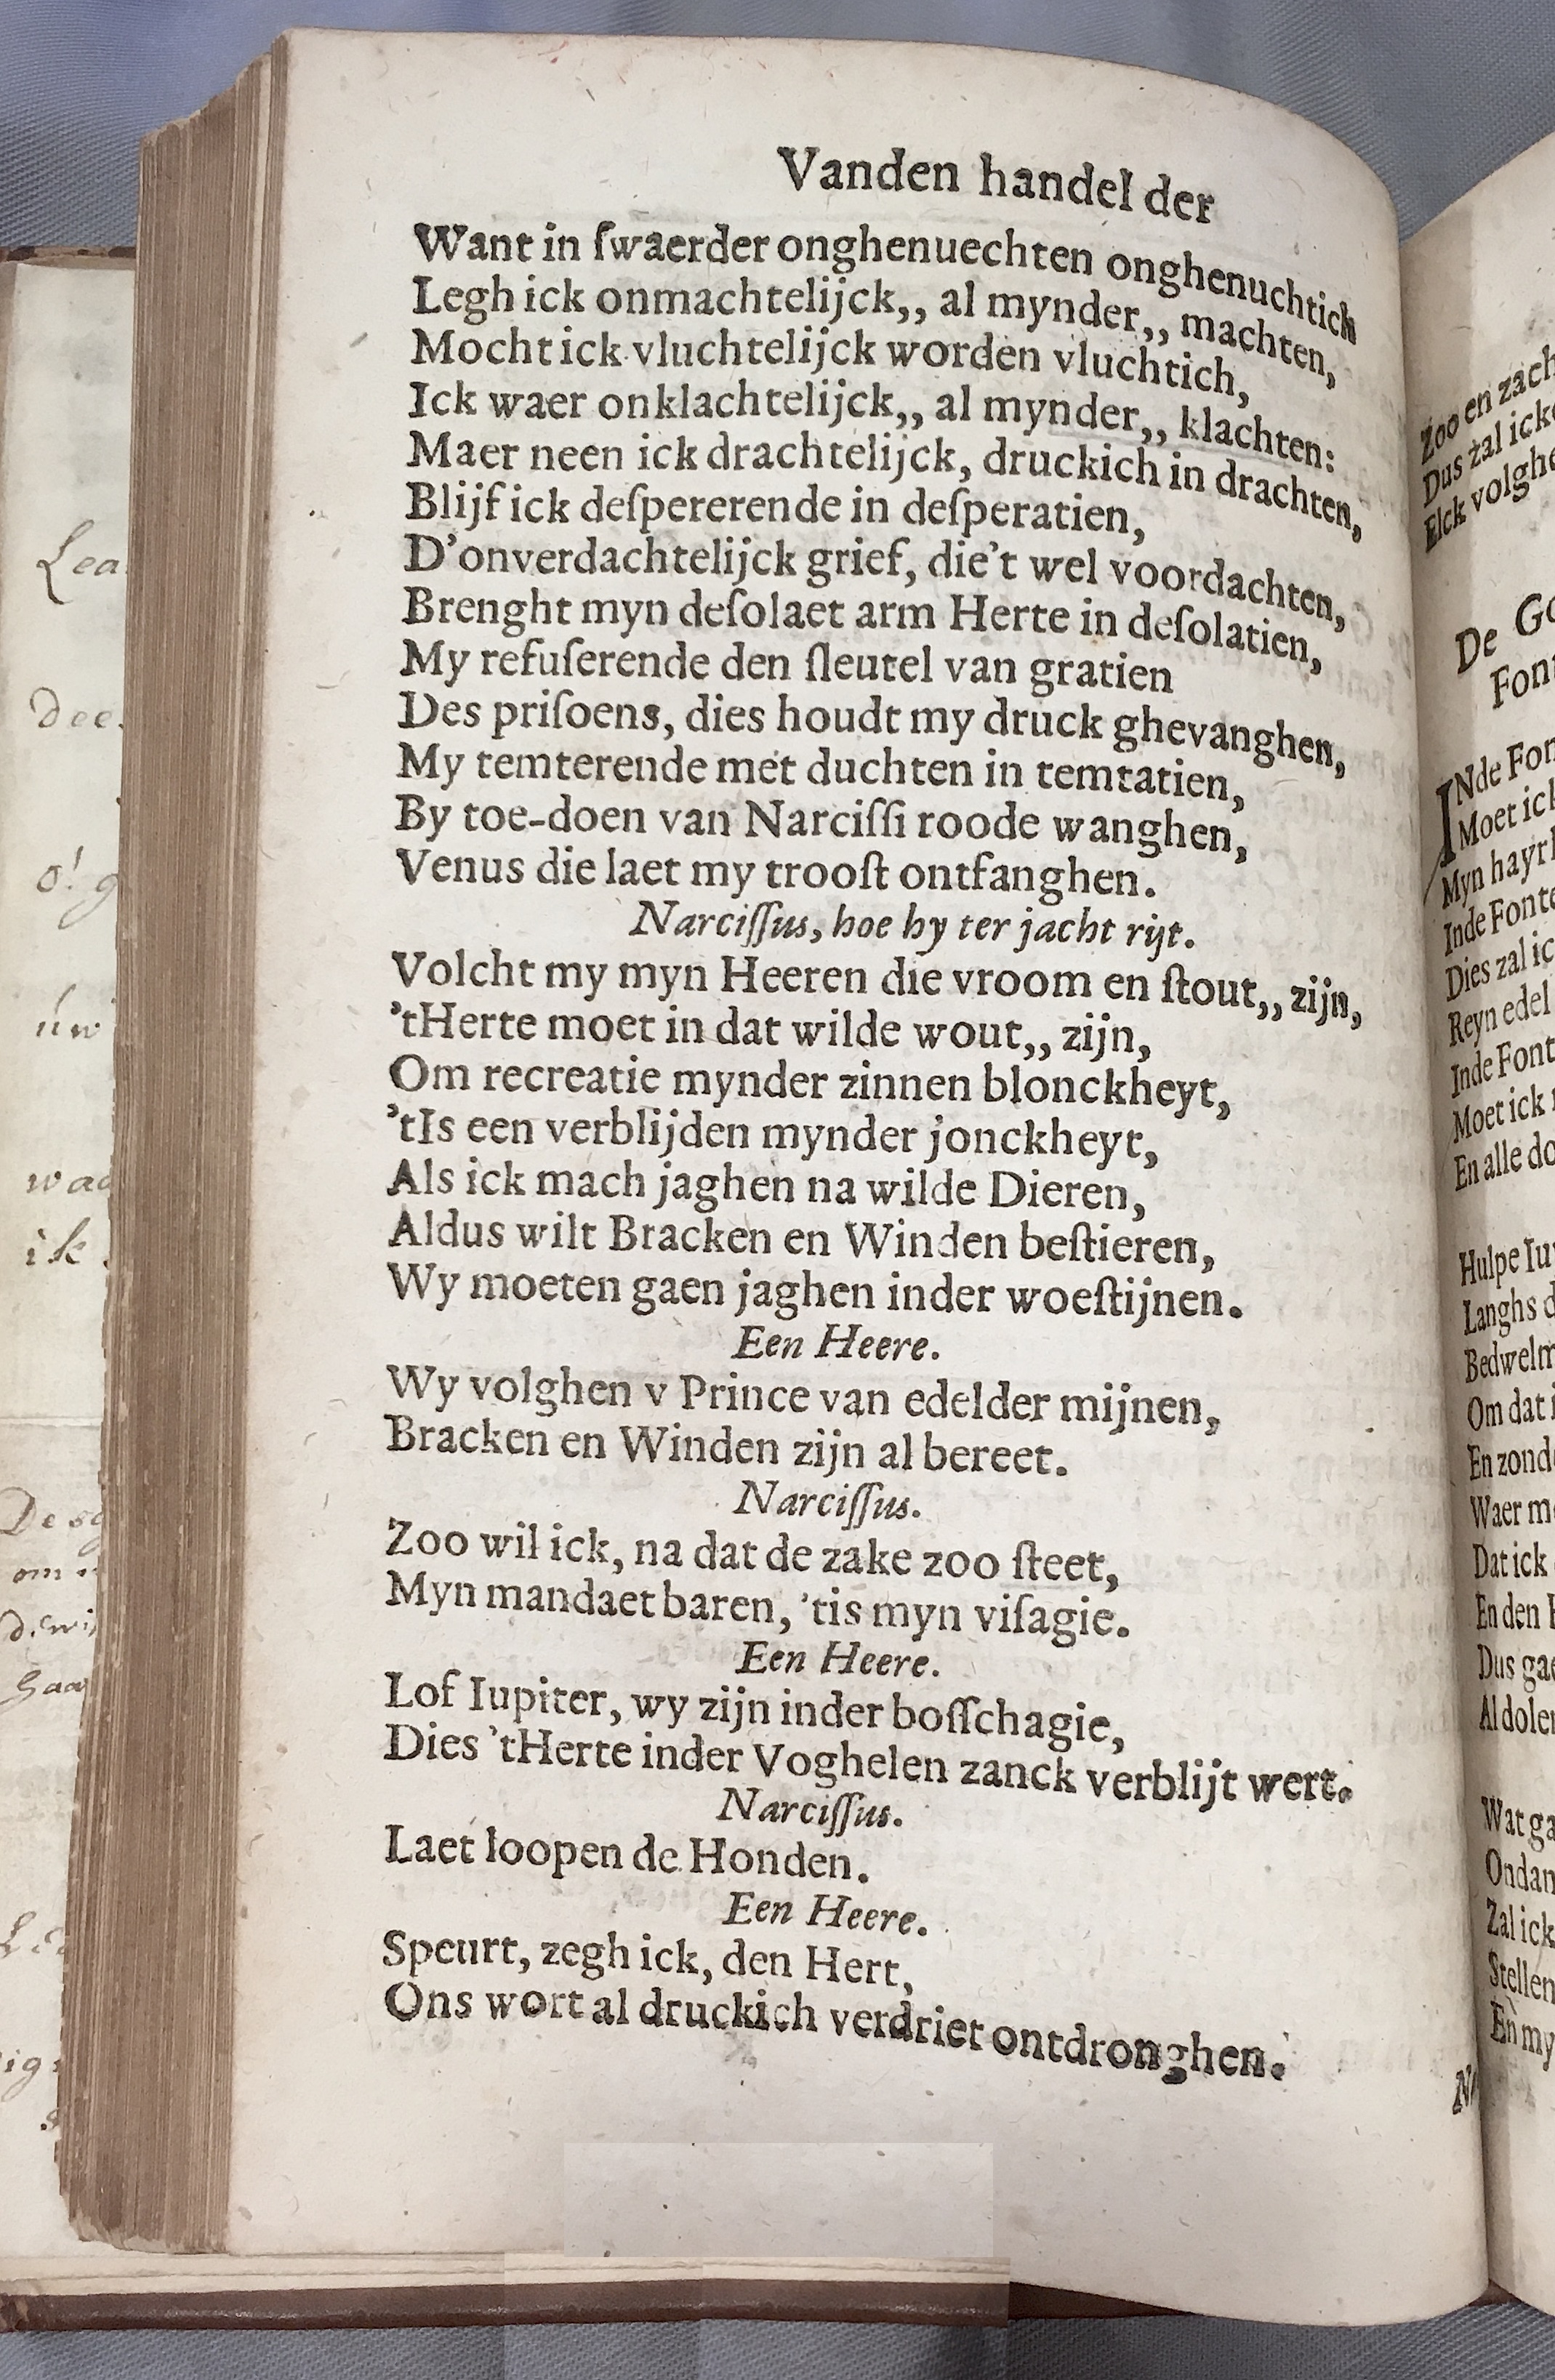 Vanden handel der
Want in ſwaerder onghenuechten onghenuchtich
Legh ick onmachtelijck,, al mynder,, machten,
Mocht ick vluchtelijck worden vluchtich,
Ick waer onklachtelijck,, al mynder,, klachten:
Maer neen ick drachtelijck, druckich in drachten,
Blijf ick deſpererende in deſperatien,
D'onverdachtelijck grief, die't wel voordachten,
Brenght myn deſolaet arm Herte in deſolatien,
My refuſerende den ſleutel van gratien
Des priſoens, dies houdt my druck ghevanghen,
My temterende met duchten in temtatien,
By toe-doen van Narciſſi roode wanghen,
Venus die laet my trooſt ontfanghen.
Narciſſus, hoe hy ter jacht rijt.
Volcht my myn Heeren die vroom en ſtout,, zijn,
'tHerte moet in dat wilde wout,, zijn,
Om recreatie mynder zinnen blonckheyt,
'tIs een verblijden mynder jonckheyt,
Als ick mach jaghen na wilde Dieren,
Aldus wilt Bracken en Winden beſtieren,
Wy moeten gaen jaghen inder woeſtijnen.
Een Heere.
Wy volghen v Prince van edelder mijnen,
Bracken en Winden zijn al bereet.
Narciſſus.
Zoo wil ick, na dat de zake zoo ſteet,
Myn mandaet baren, 'tis myn viſagie.
Een Heere.
Lof Iupiter, wy zijn inder boſſchagie,
Dies 'tHerte inder Voghelen zanck verblijt wert.
Narciſſus.
Laet loopen de Honden.
Een Heere.
Speurt, zegh ick, den Hert,
Ons wort al druckich verdriet ontdronghen.
Zoo en zach
Dus zal ick
Elck volghe
De
Font
INde Fon
Moet ick
Myn hayr
Inde Fonte
Dies zal ic
Reyn edel
Inde Font
Moet ick
En alle do
Hulpe Iu
Langhs d
Bedwelm
Om dat i
En zond
Waer m
Dat ick
En den
Dus gae
Al dolen
Wat ga
Ondan
Zal ick
Stellen
En my